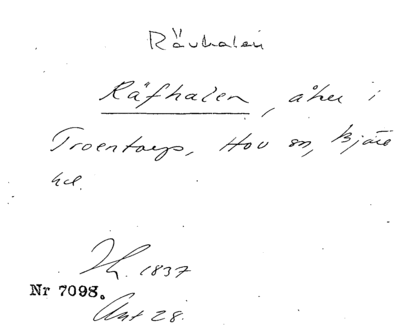 Rävhalen
Räfhalen, åker i
Troentorp, Hov sn, Bjäre
hd.
Lh. 1837
Nr 7098.
Akt 28.